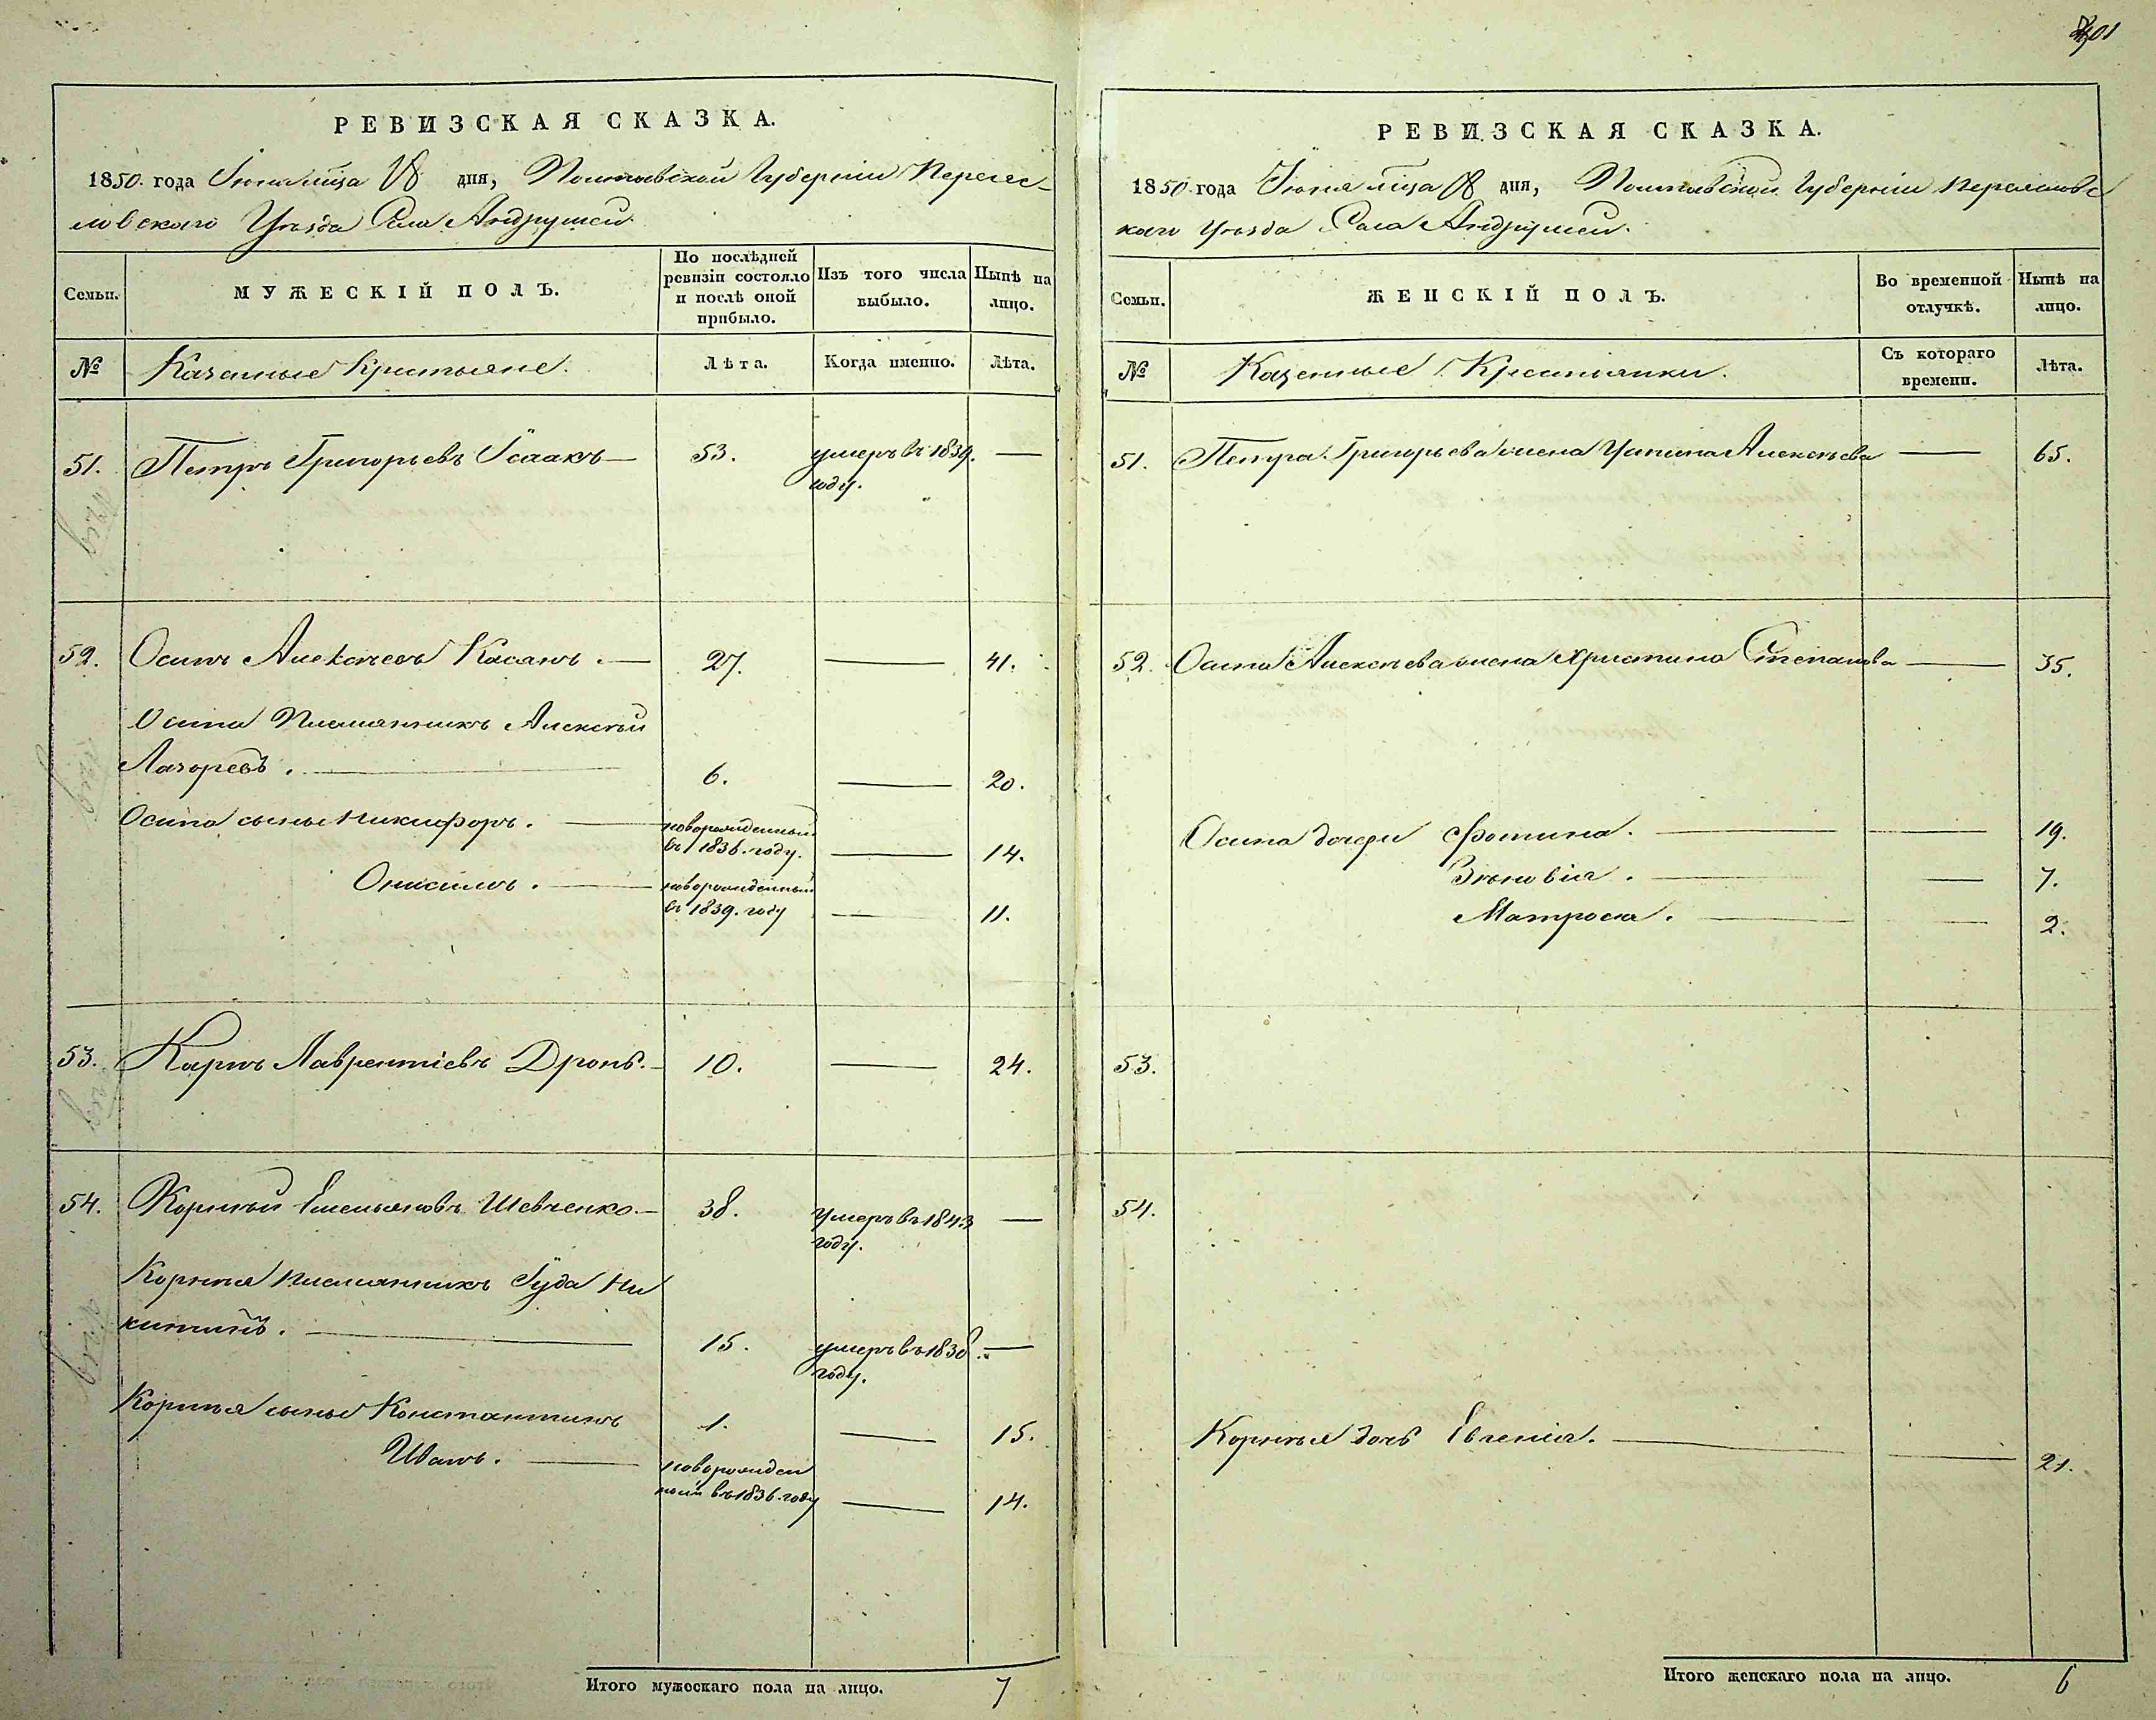 401
РЕВИЗСКАЯ СКАЗКА.
1850. года Іюня мца 18 дня, Полтавской Губерніи Переяс-
ловскаго Уѣзда Села Андрушей
Семьи.
МУЖЕСКІЙ ПОЛЪ.
По послѣдней ревизіи состояло и послѣ оной прибыло.
Изъ того числа выбыло.
Нынѣ на лицо.
№
Казенные Крестьяне.
Лѣта.
Когда именно.
Лѣта.
51. Петръ Григорьевъ Ісаакъ — 53. умеръ въ 1839. —
году.
52. Осипъ Алексѣевъ Касапъ. — 27. — 41.
Осипа Племянникъ Алексѣй
Лазоревъ. — 6. — 20.
Осипа сыны Никифоръ. — новорожденный
въ 1836. году. — 14.
Онисимъ. — новорожденный
въ 1839. году — 11.
53. Карпъ Лаврентіевъ Дронь. — 10. — 24.
54. Корнѣй Емельяновъ Шевченко. — 38. умеръ въ 1843 —
году.
Корнѣя племянникъ Іуда Ни
китинъ. — 15. умеръ въ 1838. —
году.
Корнѣя сыны Константинъ 1. — 15.
Иванъ. — новорожден
ный въ 1836. году — 14.
Итого мужескаго пола на лицо. 7
РЕВИЗСКАЯ СКАЗКА.
1850. года Іюня мца 18 дня, Полтавской Губерніи Переясловс
каго Уѣзда Села Андрушей.
Семьи.
ЖЕНСКІЙ ПОЛЪ.
Во временной отлучкѣ.
Нынѣ на лицо.
№
Казенные Крестьянки.
Съ котораго времени.
Лѣта.
51. Петра Григорьева жена Алексѣева — 65.
52. Осипа Алексѣева жена Христина Степанова — 35.
Осипа дочери Фотина. — — 19.
Зѣновія. — — 7.
Матрона. — — 2.
53.
54.
Корнѣя дочь Евгенія. — — 21.
Итого женскаго пола на лицо. 6